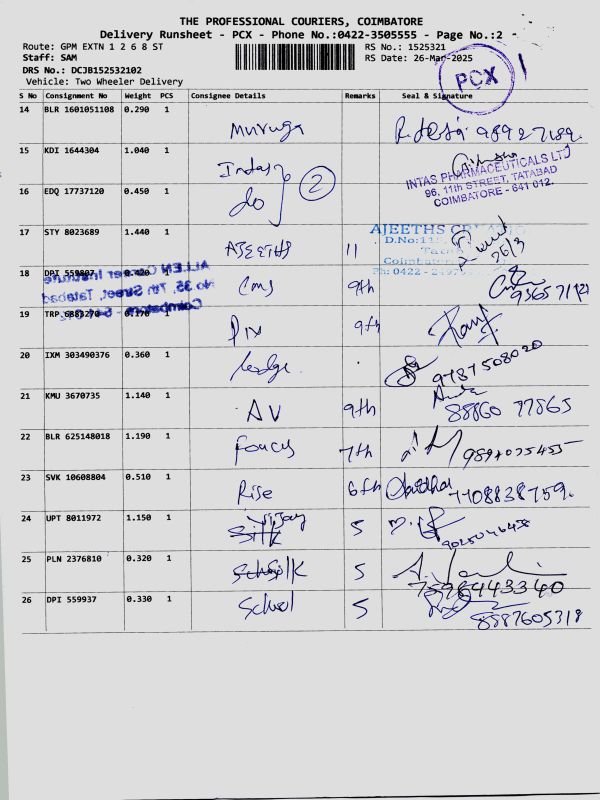 THE PROFESSIONAL COURIERS, COIMBATORE
Delivery Runsheet - PCX - Phone No.:0422-3505555 - Page No.:2 -
Route: GPM EXTN 1 2 6 8 ST
RS No.: 1525321
Staff: SAM
RS Date: 26-Mar-2025
DRS No.: DCJB152532102
PCX
Vehicle: Two Wheeler Delivery
S No Consignment No Weight PCS Consignee Details Remarks Seal & Signature
14 BLR 1601051108 0.290 1 Muruga
15 KDI 1644304 1.040 1
INTAS PHARMACEUTICALS LTD
96, 11th STREET, TATABAD
COIMBATORE - 641 012.
16 EDQ 17737120 0.450 1 do 2
17 STY 8023689 1.440 1 AJEETHS 11
AJEETHS
D.No:
26/3
Ph: 0422 -
18 DPI 559807 0.420 1 Cms 9th
ALLEN Career Institute
No 35, 7th Street, Tatabad
19 TRP 6883270 0.170 1 Pix 9th
20 IXM 303490376 0.360 1 9787508020
21 KMU 3670735 1.140 1 AV 9th 88860 77865
22 BLR 625148018 1.190 1 7th
23 SVK 10608804 0.510 1 Rise 6th 7708838759.
24 UPT 8011972 1.150 1 Vijay 5 9025046438
25 PLN 2376810 0.320 1 Silk 5
26 DPI 559937 0.330 1 School 5 8587605318